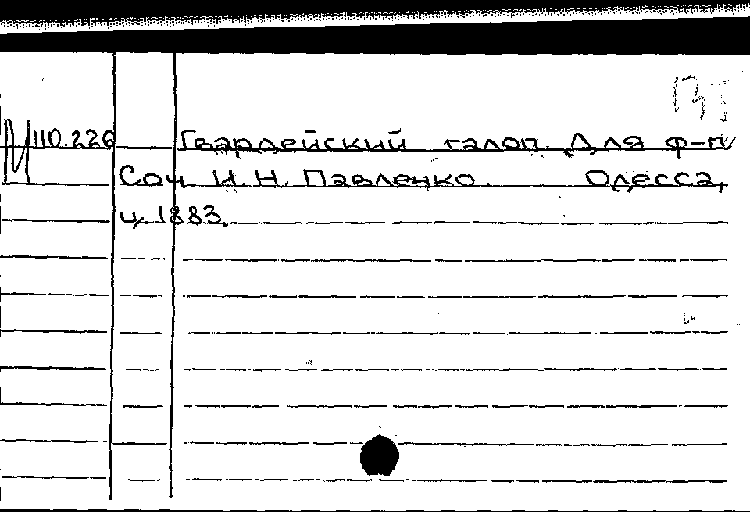 М 110.226 Гвардейский галоп. Для ф-п
Соч. И.Н. Павленко. Одесса,
ц. 1883.